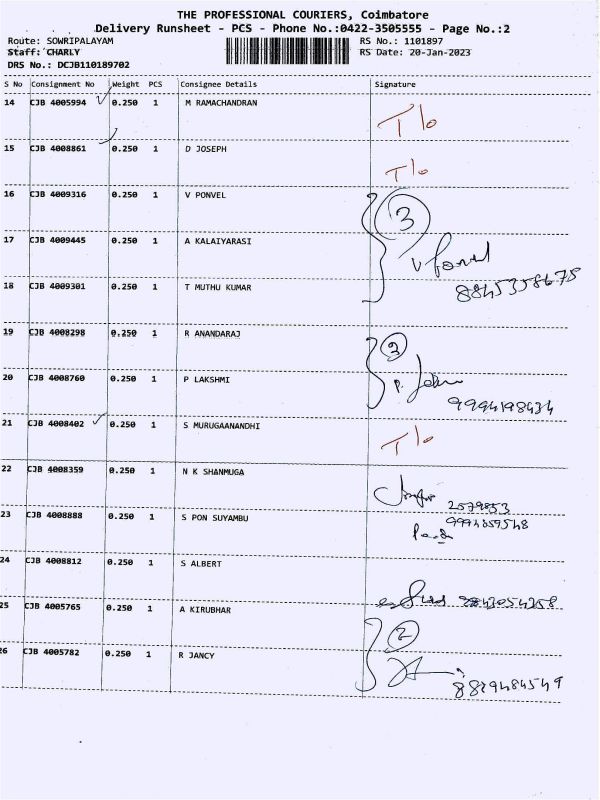 THE PROFESSIONAL COURIERS, Coimbatore
Delivery Runsheet - PCS - Phone No.:0422-3505555 - Page No.:2
Route: SOWRIPALAYAM RS No.: 1101897
Staff: CHARLY RS Date: 20-Jan-2023
DRS No.: DCJB110189702
S No Consignment No Weight PCS Consignee Details Signature
14 CJB 4005994 0.250 1 M RAMACHANDRAN T/o
15 CJB 4008861 0.250 1 D JOSEPH T/o
16 CJB 4009316 0.250 1 V PONVEL 3
17 CJB 4009445 0.250 1 A KALAIYARASI V Ponvel
18 CJB 4009301 0.250 1 T MUTHU KUMAR 8845358675
19 CJB 4008298 0.250 1 R ANANDARAJ 2
20 CJB 4008760 0.250 1 P LAKSHMI P.
9994198434
21 CJB 4008402 0.250 1 S MURUGAANANDHI T/o
22 CJB 4008359 0.250 1 N K SHANMUGA
2579853
23 CJB 4008888 0.250 1 S PON SUYAMBU
24 CJB 4008812 0.250 1 S ALBERT
25 CJB 4005765 0.250 1 A KIRUBHAR 2
26 CJB 4005782 0.250 1 R JANCY
8829484549